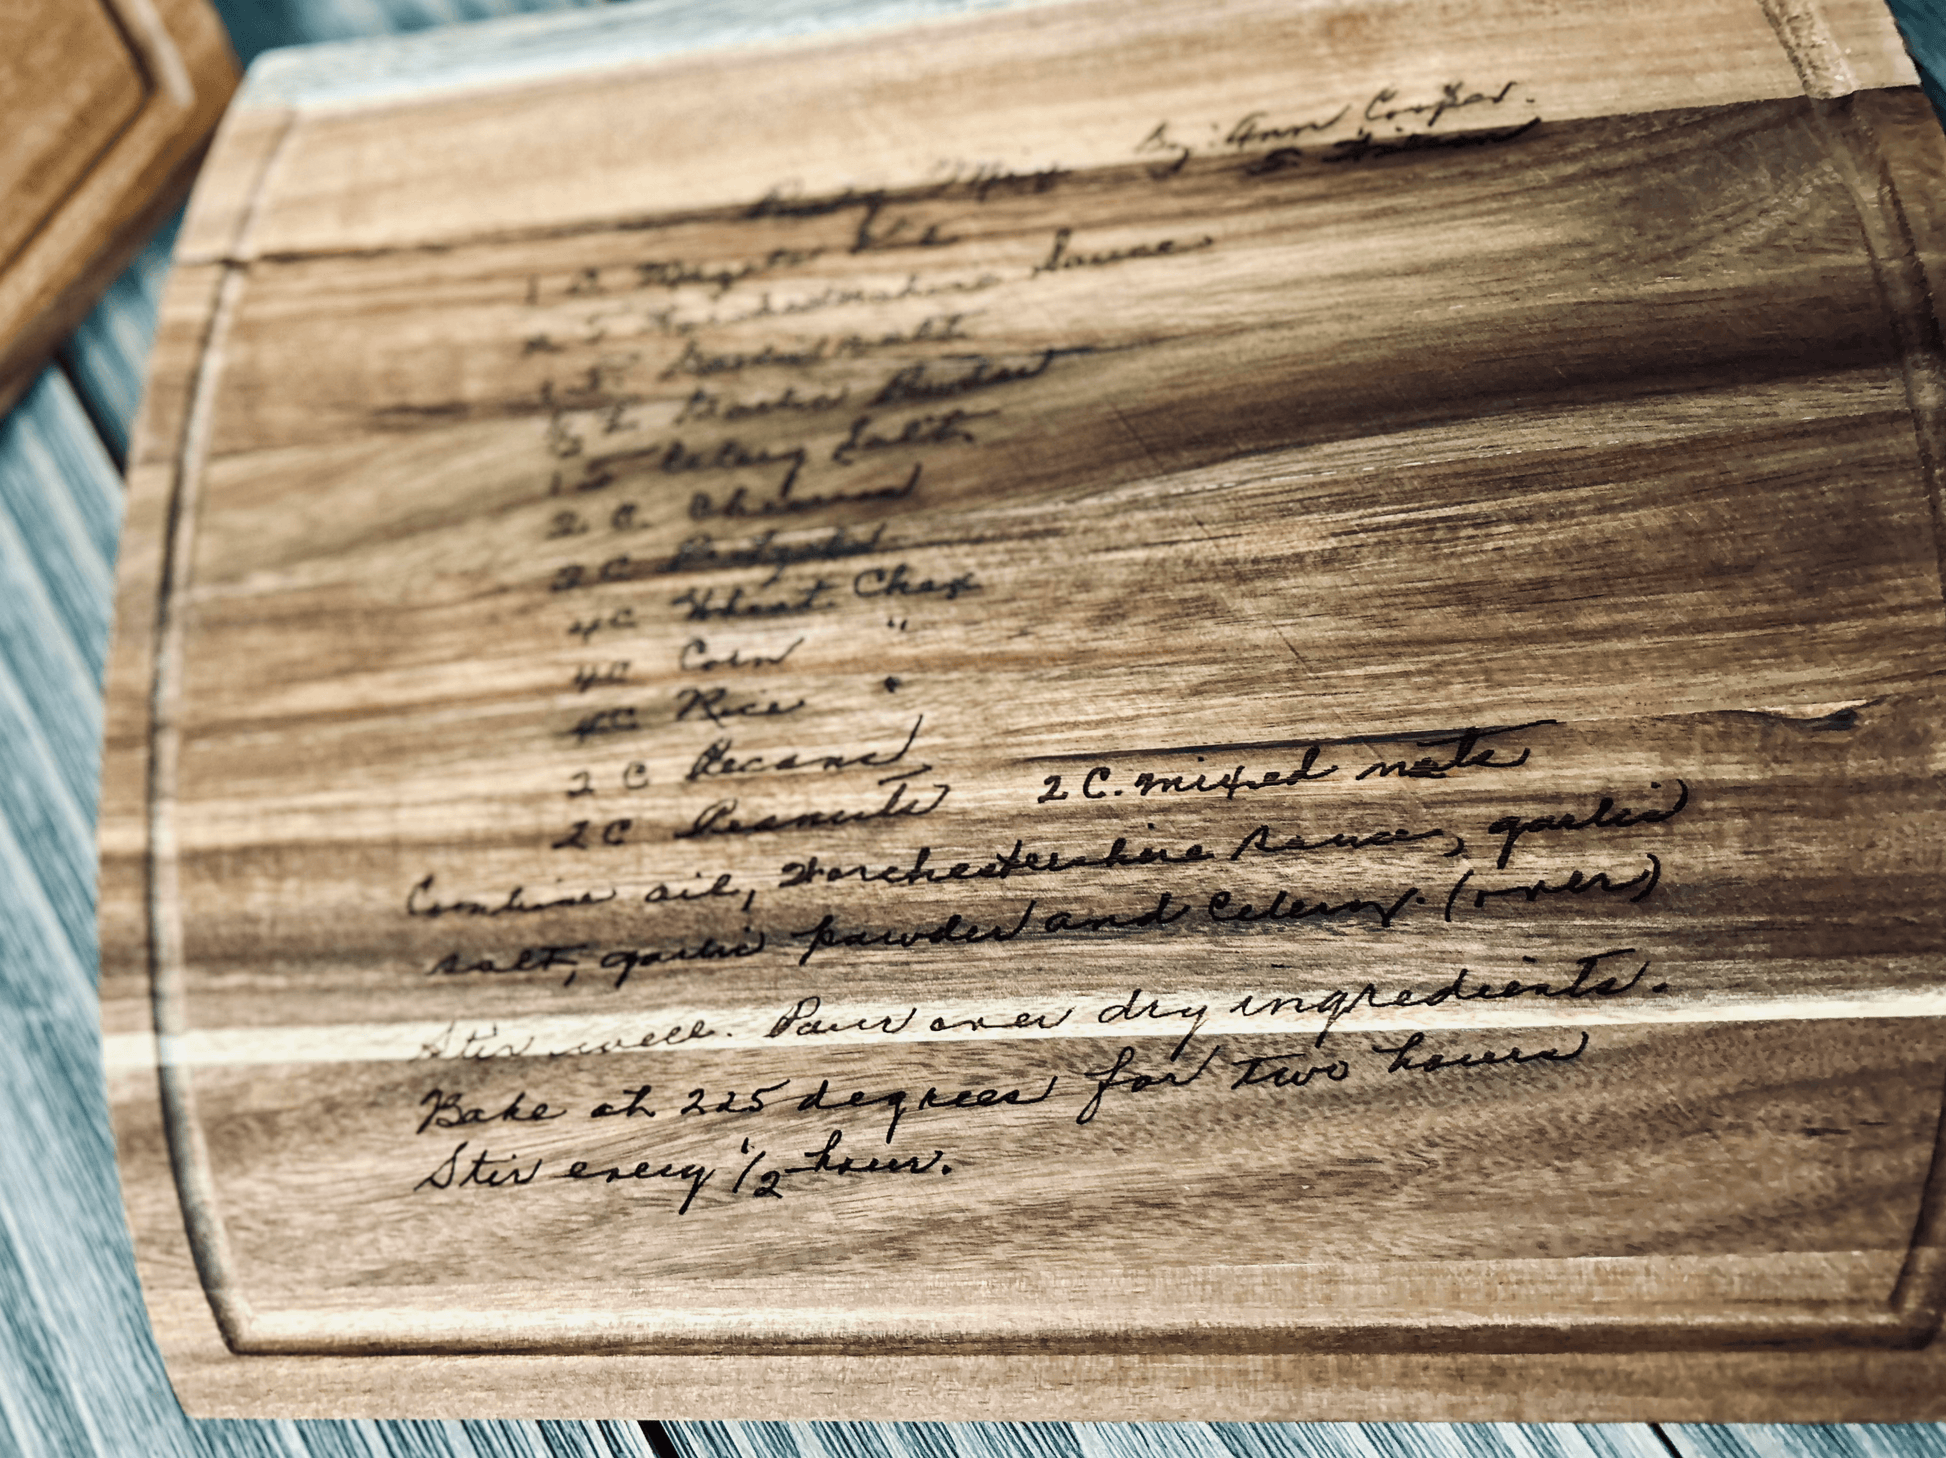 Party Mix By: Ann Cooper.
1 C. Oil
2 T Worchestershire Sauce
1 T Garlic salt
Garlic Powder
1 T Celery Salt
2 C. Cheerios
2 C Pretzels
4C Wheat Chex
4C Corn "
4C Rice "
2 C Pecans
2 C Peanuts 2 C. mixed nuts
Combine oil, Worchestershire sauce, garlic
salt, garlic powder and Celery. (over)
Stir well. Pour over dry ingredients.
Bake at 225 degrees for two hours
Stir every 1/2 hour.